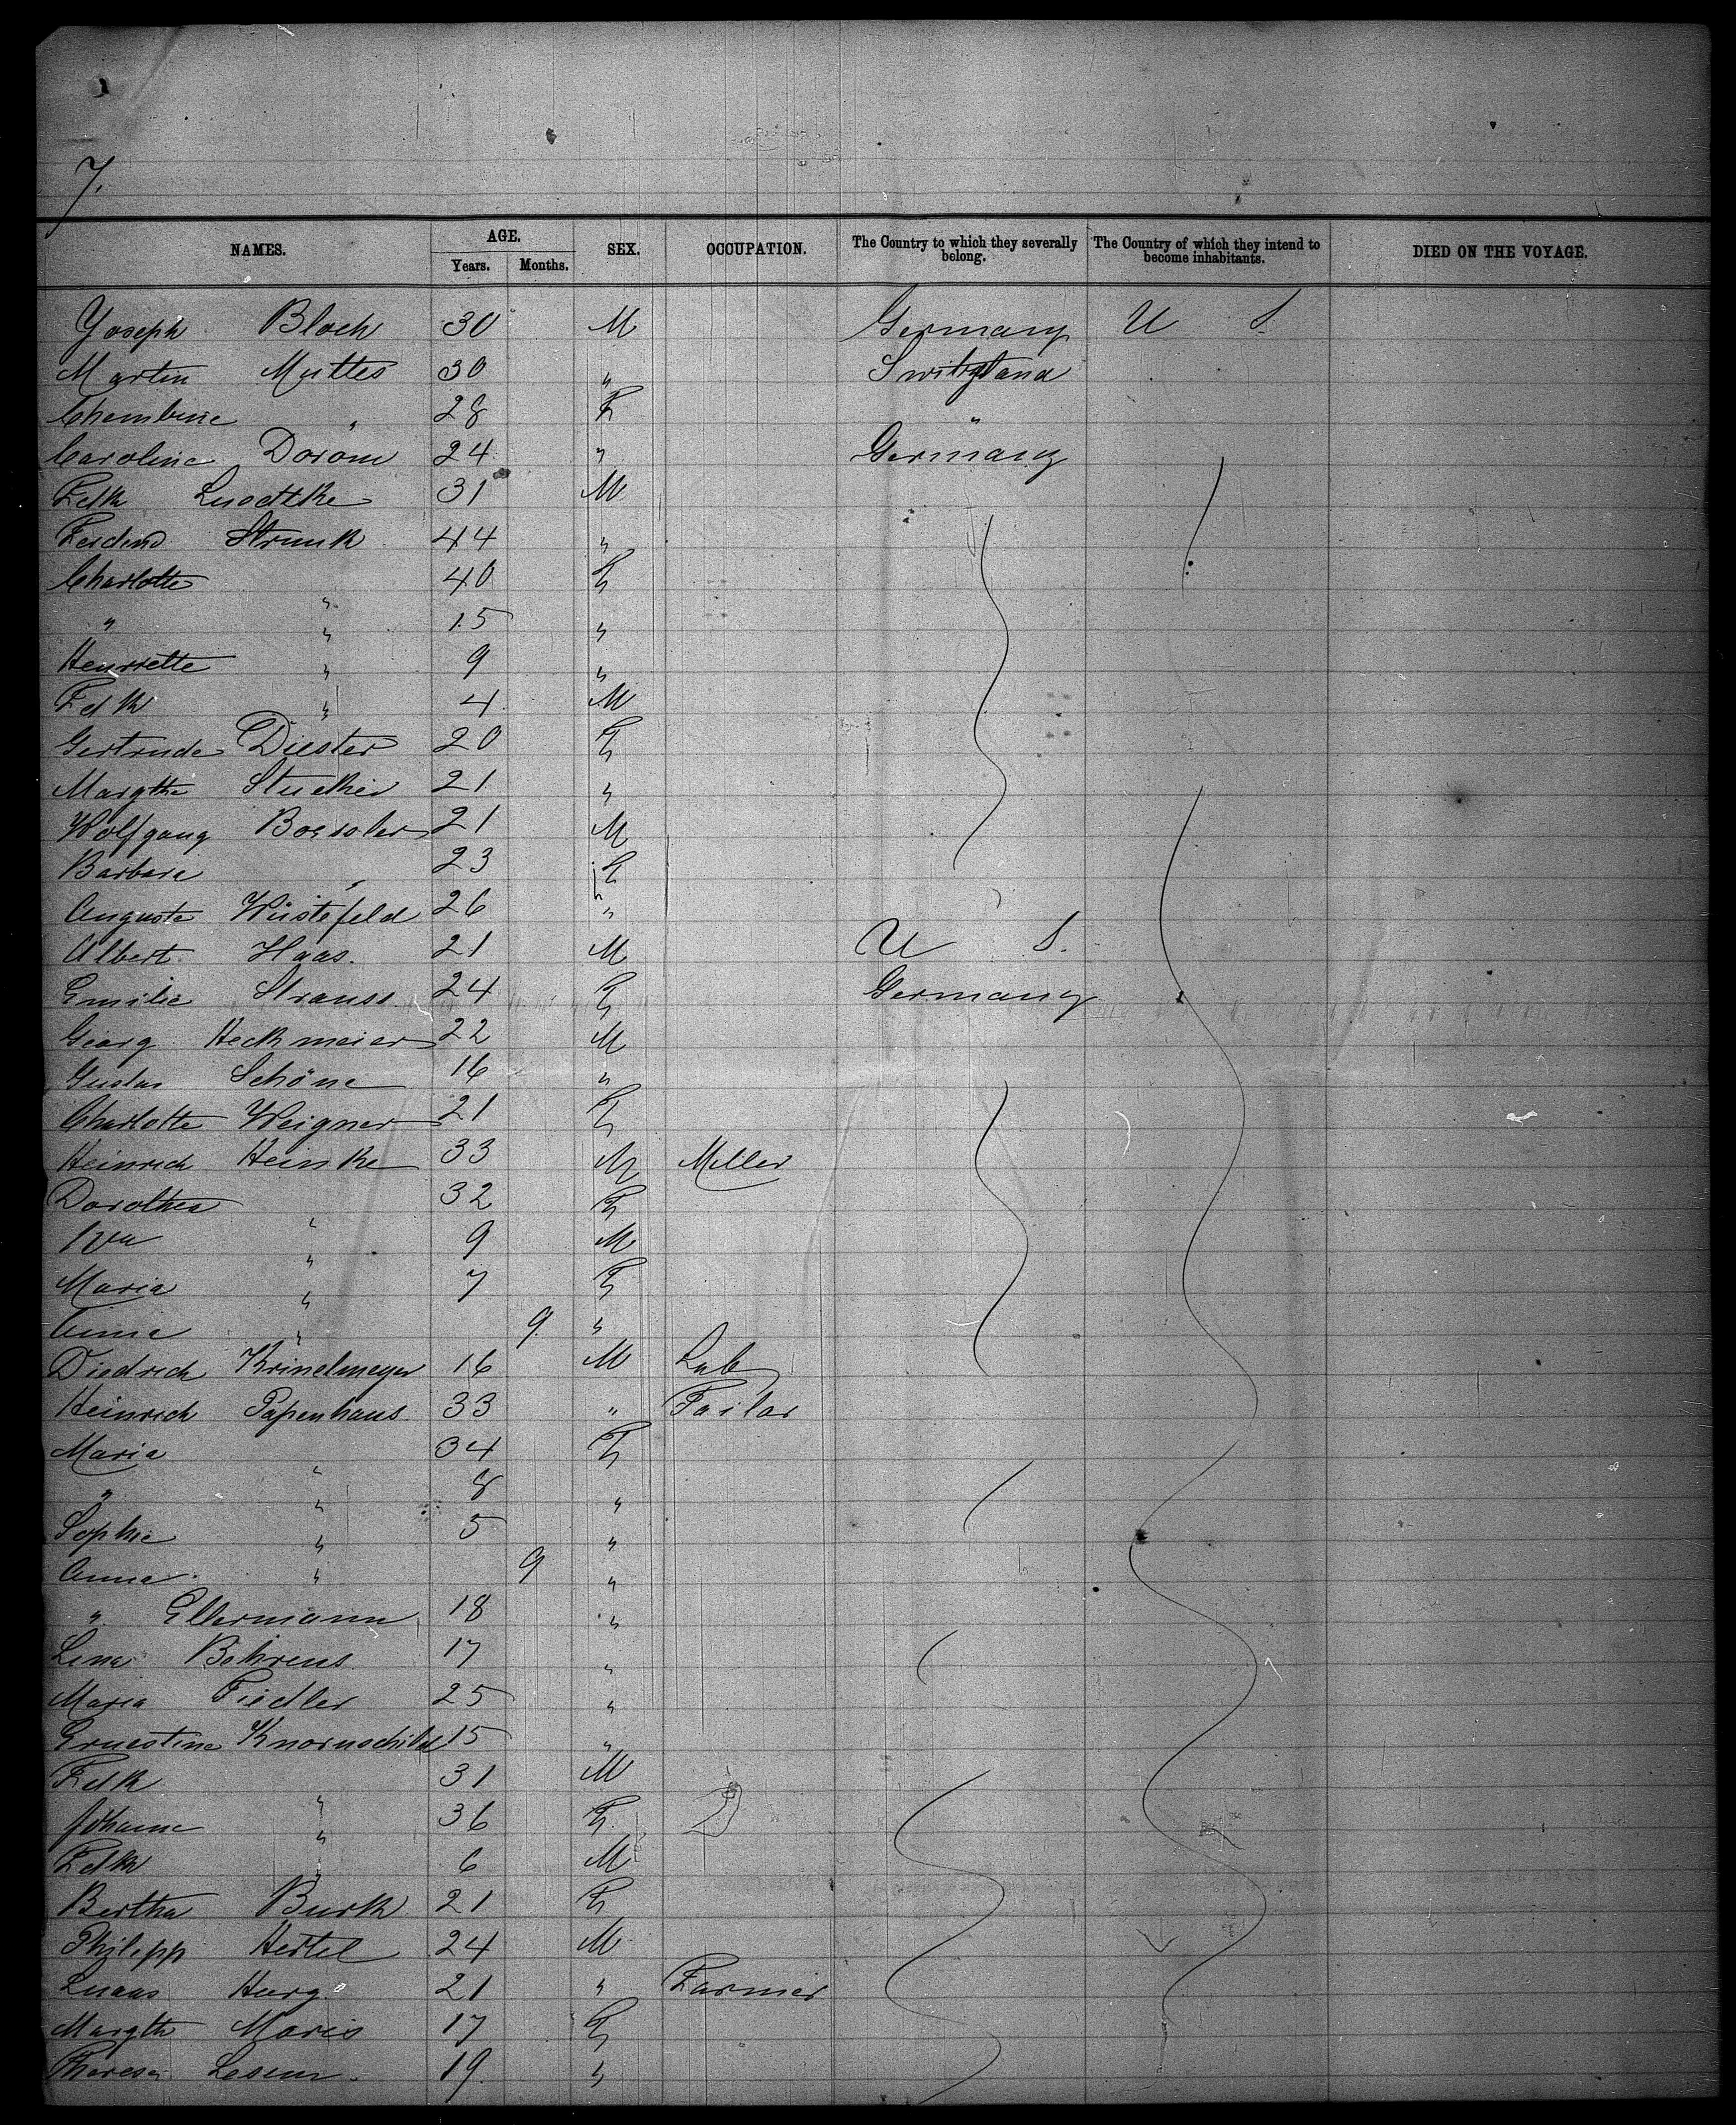 7.
NAMES. AGE. Years. Months. SEX. OCCUPATION. The Country to which they severally belong. The Country of which they intend to become inhabitants. DIED ON THE VOYAGE.
Joseph Bloch 30 M Germany U S
Martin Muttes 30 " Switzland
28 F "
Caroline Dorom 24 " Germany
Fdk Luedtke 31 M
Ferdend Strunk 44 "
Charlotte " 40 F
" " 15 "
Henriette " 9 "
Fdk " 4 M
Gertrude Diester 20 F
Margthe Stucker 21 "
Wolfgang Bossler 21 M
Barbara " 23 F
Auguste Wüstefeld 26 "
Albert Haas. 21 M U S.
Emilie Strauss 24 F Germany
Georg Heckmeier 22 M
Gustav Schöne 16 "
Charlotte Weigner 21 F
Heinrich Heinke 33 M Miller
Dorothea " 32 F
" 9 M
Maria " 7 F
Anna " 9. "
Diedrich Krinelmeyer 16 M Lab
Heinrich Papenhaus 33 " Tailor
Maria " 34 F
" " 8 "
Sophie " 5 "
Anna " 9 "
" Ellermann 18 "
Lina Behrens 17 "
Maria Fiedler 25 "
Ernestine Knornschild 15 "
Fdk " 31 M
Johanne " 36 F
Fdk " 6 M
Bertha Burk 21 F
Philipp Hertel 24 M
Lucas Herg 21 " Farmer
Margth Maries 17 F
Theresa Leseur 19. "